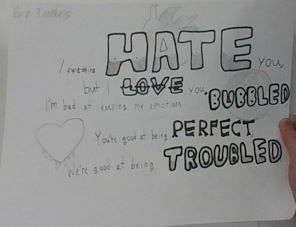 I HATE you,
but I LOVE you
I'm bad at keeping my emotion BUBBLED
You're good at being PERFECT,
We're good at being TROUBLED